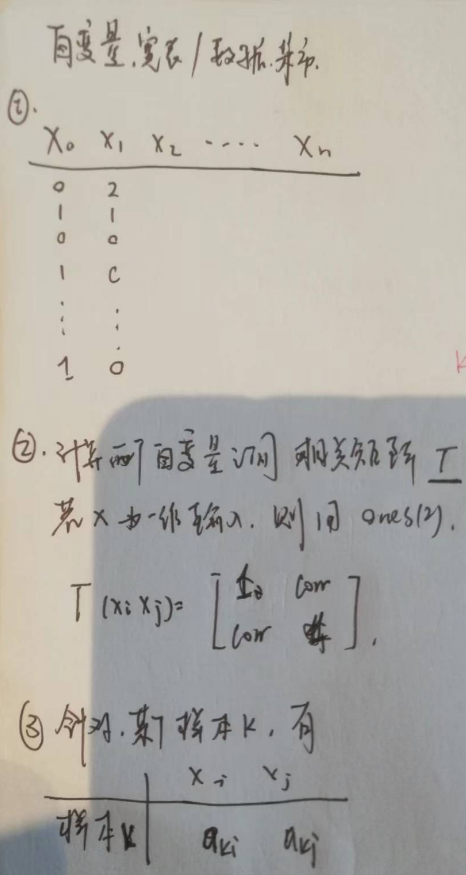 自变量.离散/数据.其市.
①.
X₀ X₁ X₂ ····· Xₙ
0 2
1 1
0 0
1 C
⋮ ⋮
1 0
②.计算两个自变量之间 相关矩阵 T
若 X 为一维输入.则用 ones(2).
T(xi xj)= [1.0 corr
corr 1]
③ 针对.某个样本K,有
xi xj
样本K aki akj
K